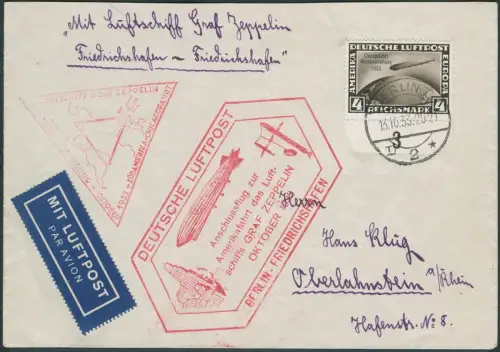 "Mit Luftschiff Graf Zeppelin
Friedrichshafen – Friedrichshafen"
DEUTSCHE LUFTPOST
AMERIKA
EUROPA
4
REICHSMARK
4
BERLIN
13.10.33.20-21
2
3
GRAF ZEPPELIN
1933
SÜDAMERIKA
DEUTSCHE LUFTPOST
Anschlussflug zur
Amerikafahrt des Luft-
schiffs GRAF ZEPPELIN
OKTOBER
BERLIN-FRIEDRICHSHAFEN
MIT LUFTPOST
PAR AVION
Herrn
Hans Klug
Oberlahnstein a/Rhein
Hafenstr. No 8.